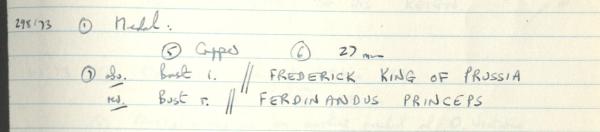 298/73 ① Medal:
⑤ Copper ⑥ 27 mm
⑦ obv. Bust l. // FREDERICK KING OF PRUSSIA
rev. Bust r. // FERDINANDUS PRINCEPS